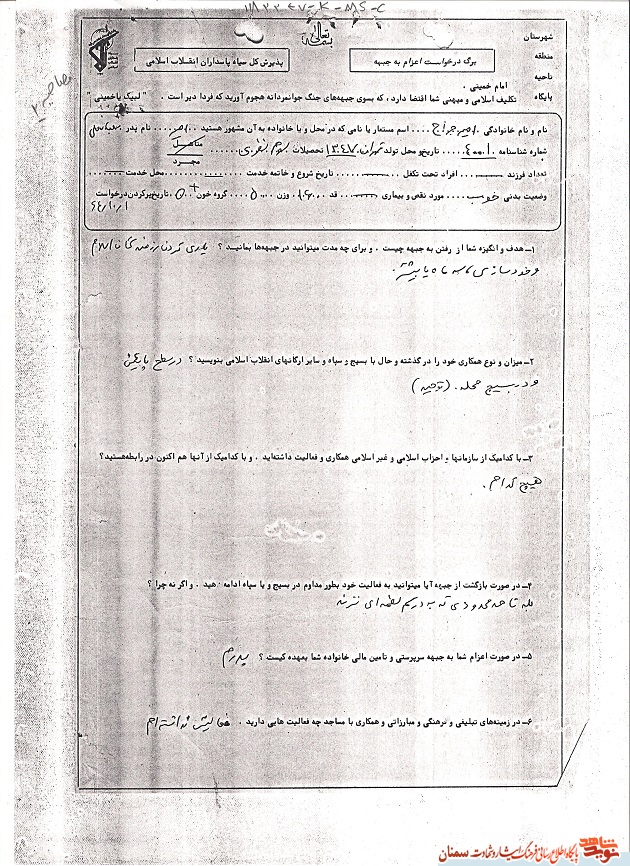 بسمه تعالی
شهرستان
منطقه
ناحیه
پایگاه
برگ درخواست اعزام به جبهه
پذیرش کل سپاه پاسداران انقلاب اسلامی
مصاحبه
امام خمینی .
تکلیف اسلامی و میهنی شما اقتضا دارد، که بسوی جبهه‌های جنگ جوانمردانه هجوم آورید که فردا دیر است . " لبیک یا خمینی "
نام و نام خانوادگی . امیر ... اسم مستعار یا نامی که در محل و یا خانواده به آن مشهور هستید .. امیر .. نام پدر
شماره شناسنامه .. ۴۰۰۱ .. تاریخ و محل تولد تهران ۱۳۴۷ تحصیلات سوم نظری متاهل مجرد
تعداد فرزند ... افراد تحت تکفل ... تاریخ شروع و خاتمه خدمت ... محل خدمت ...
وضعیت بدنی خوب ... مورد نقص و بیماری ... قد ... وزن ۵۰ ... گروه خون O+ تاریخ پر کردن درخواست
۶۴/۱۰/۱
۱ــ هدف و انگیزه شما از رفتن به جبهه چیست . و برای چه مدت میتوانید در جبهه‌ها بمانید ؟ یاری کردن رزمندگان اسلام
و خودسازی تا سه ماه یا بیشتر .
۲ــ میزان و نوع همکاری خود را در گذشته و حال با بسیج و سپاه و سایر ارگانهای انقلاب اسلامی بنویسید ؟ در سطح پایین
و در بسیج محله . ( توحید )
۳ــ با کدامیک از سازمانها و احزاب اسلامی و غیر اسلامی همکاری و فعالیت داشته‌اید . و با کدامیک از آنها هم اکنون در رابطه هستید؟
هیچ کدام .
۴ــ در صورت بازگشت از جبهه آیا میتوانید به فعالیت خود بطور مداوم در بسیج و یا سپاه ادامه دهید . و اگر نه چرا ؟
بله تا حد محدودی که به درسم لطمه‌ای نزند
۵ــ در صورت اعزام شما به جبهه سرپرستی و تامین مالی خانواده شما بعهده کیست ؟ پدرم
۶ــ در زمینه‌های تبلیغی و فرهنگی و مبارزاتی و همکاری با مساجد چه فعالیت هایی دارید . فعالیتی نداشته‌ام
نوید شاهد
پایگاه اطلاع رسانی فرهنگ ایثار و شهادت سمنان